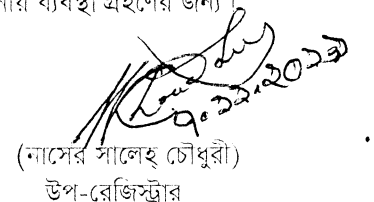 ব্যবস্থা গ্রহণের জন্য।
৭.১১.২০১১
(নাসের সালেহ্ চৌধুরী)
উপ-রেজিস্ট্রার